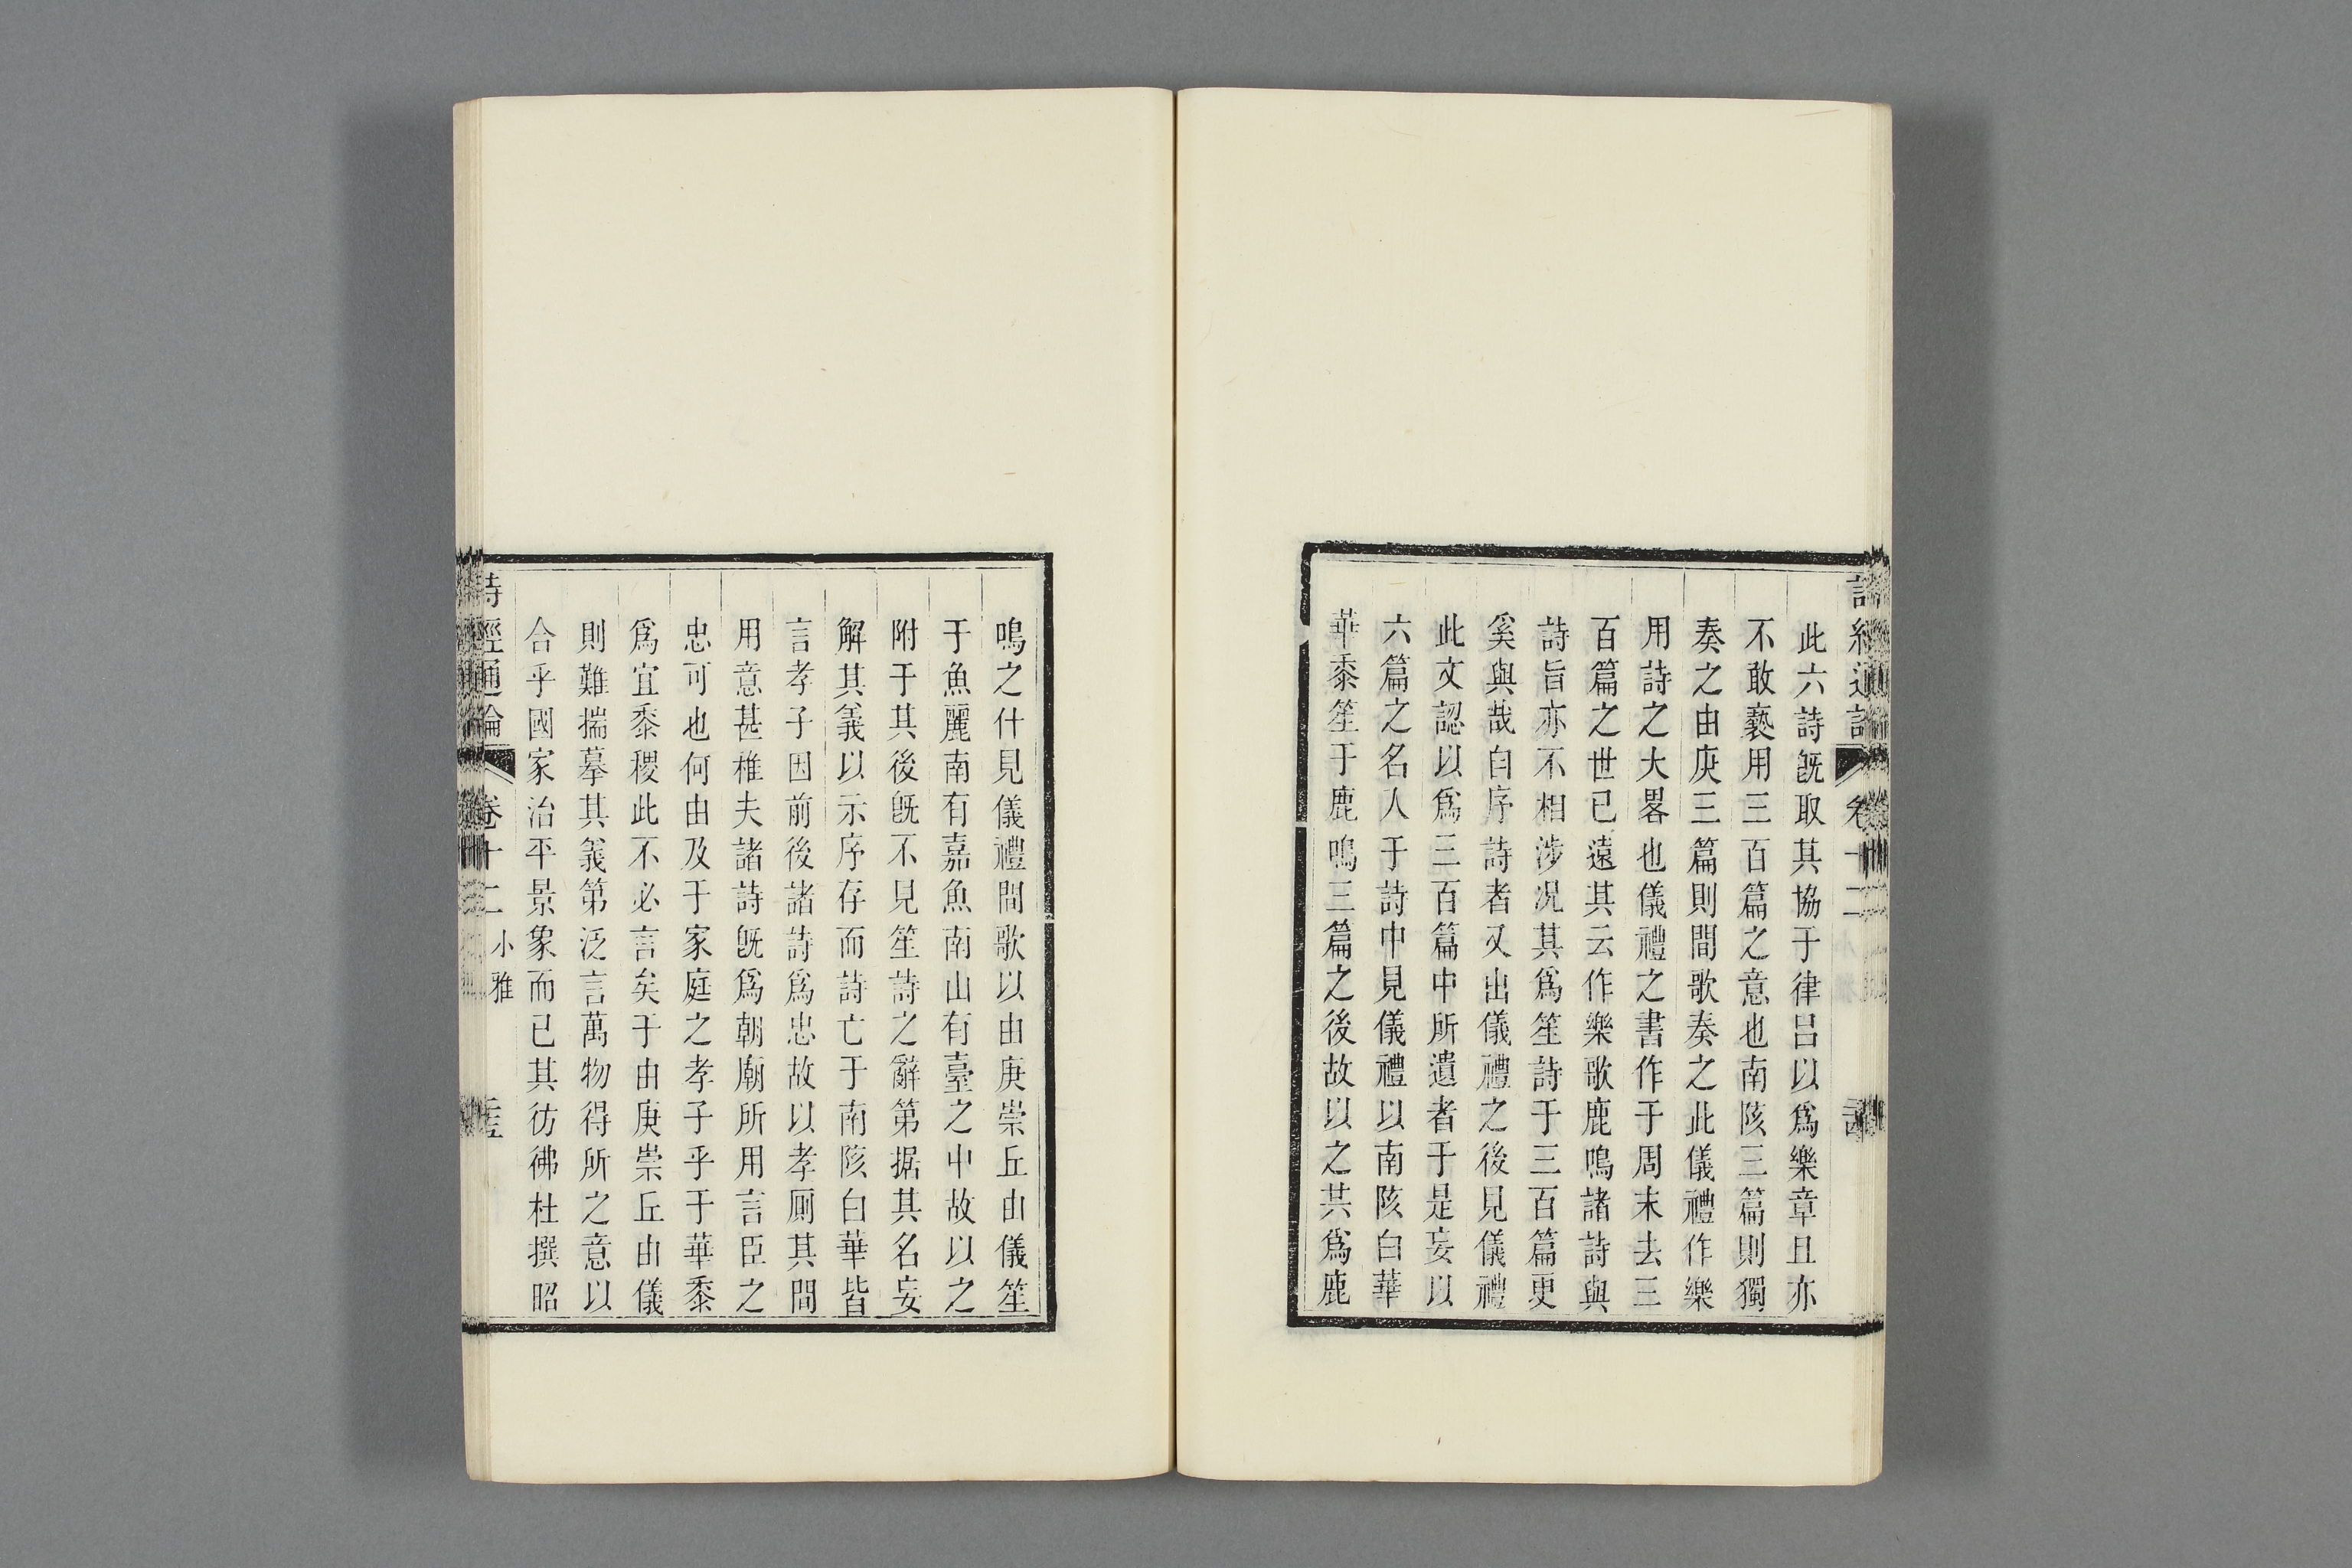 此六詩旣取其協于律吕以爲樂章且亦
不敢褻用三百篇之意也南陔三篇則獨
奏之由庚三篇則間歌奏之此儀禮作樂
用詩之大畧也儀禮之書作于周末去三
百篇之世已遠其云作樂歌鹿鳴諸詩與
詩旨亦不相涉况其爲笙詩于三百篇更
奚與哉自序詩者又出儀禮之後見儀禮
此文認以爲三百篇中所遺者于是妄以
六篇之名入于詩中見儀禮以南陔白華
華黍笙于鹿鳴三篇之後故以之共爲鹿
鳴之什見儀禮間歌以由庚崇丘由儀笙
于魚麗南有嘉魚南山有臺之中故以之
附于其後旣不見笙詩之辭第据其名妄
解其義以示序存而詩亡于南陔白華皆
言孝子因前後諸詩爲忠故以孝厠其間
用意甚稚夫諸詩旣爲朝廟所用言臣之
忠可也何由及于家庭之孝子乎于華黍
爲宜黍稷此不必言矣于由庚崇丘由儀
則難揣摹其義第泛言萬物得所之意以
合乎國家治平景象而已其彷彿杜撰昭
詩經通論
卷十二
小雅